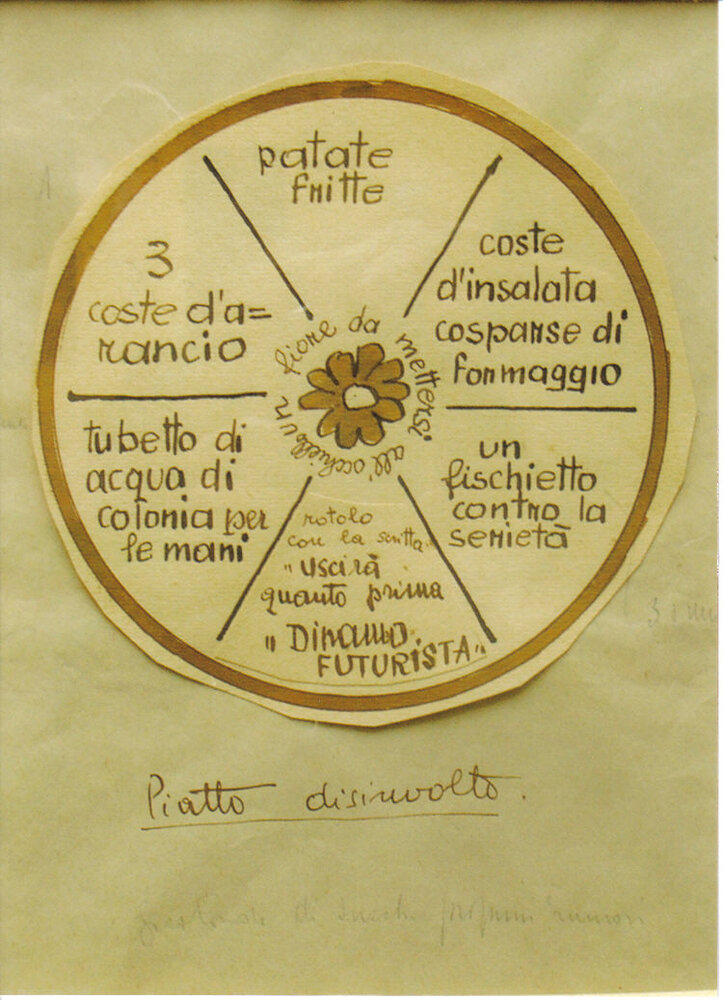 patate
fritte
coste
d'insalata
cosparse di
formaggio
un
fischietto
contro la
serietà
rotolo
con la scritta
"uscirà
quanto prima
"DINAMO
FUTURISTA"
tubetto di
acqua di
colonia per
le mani
3
coste d'a=
rancio
un fiore da mettersi all'occhiello
Piatto disinvolto.